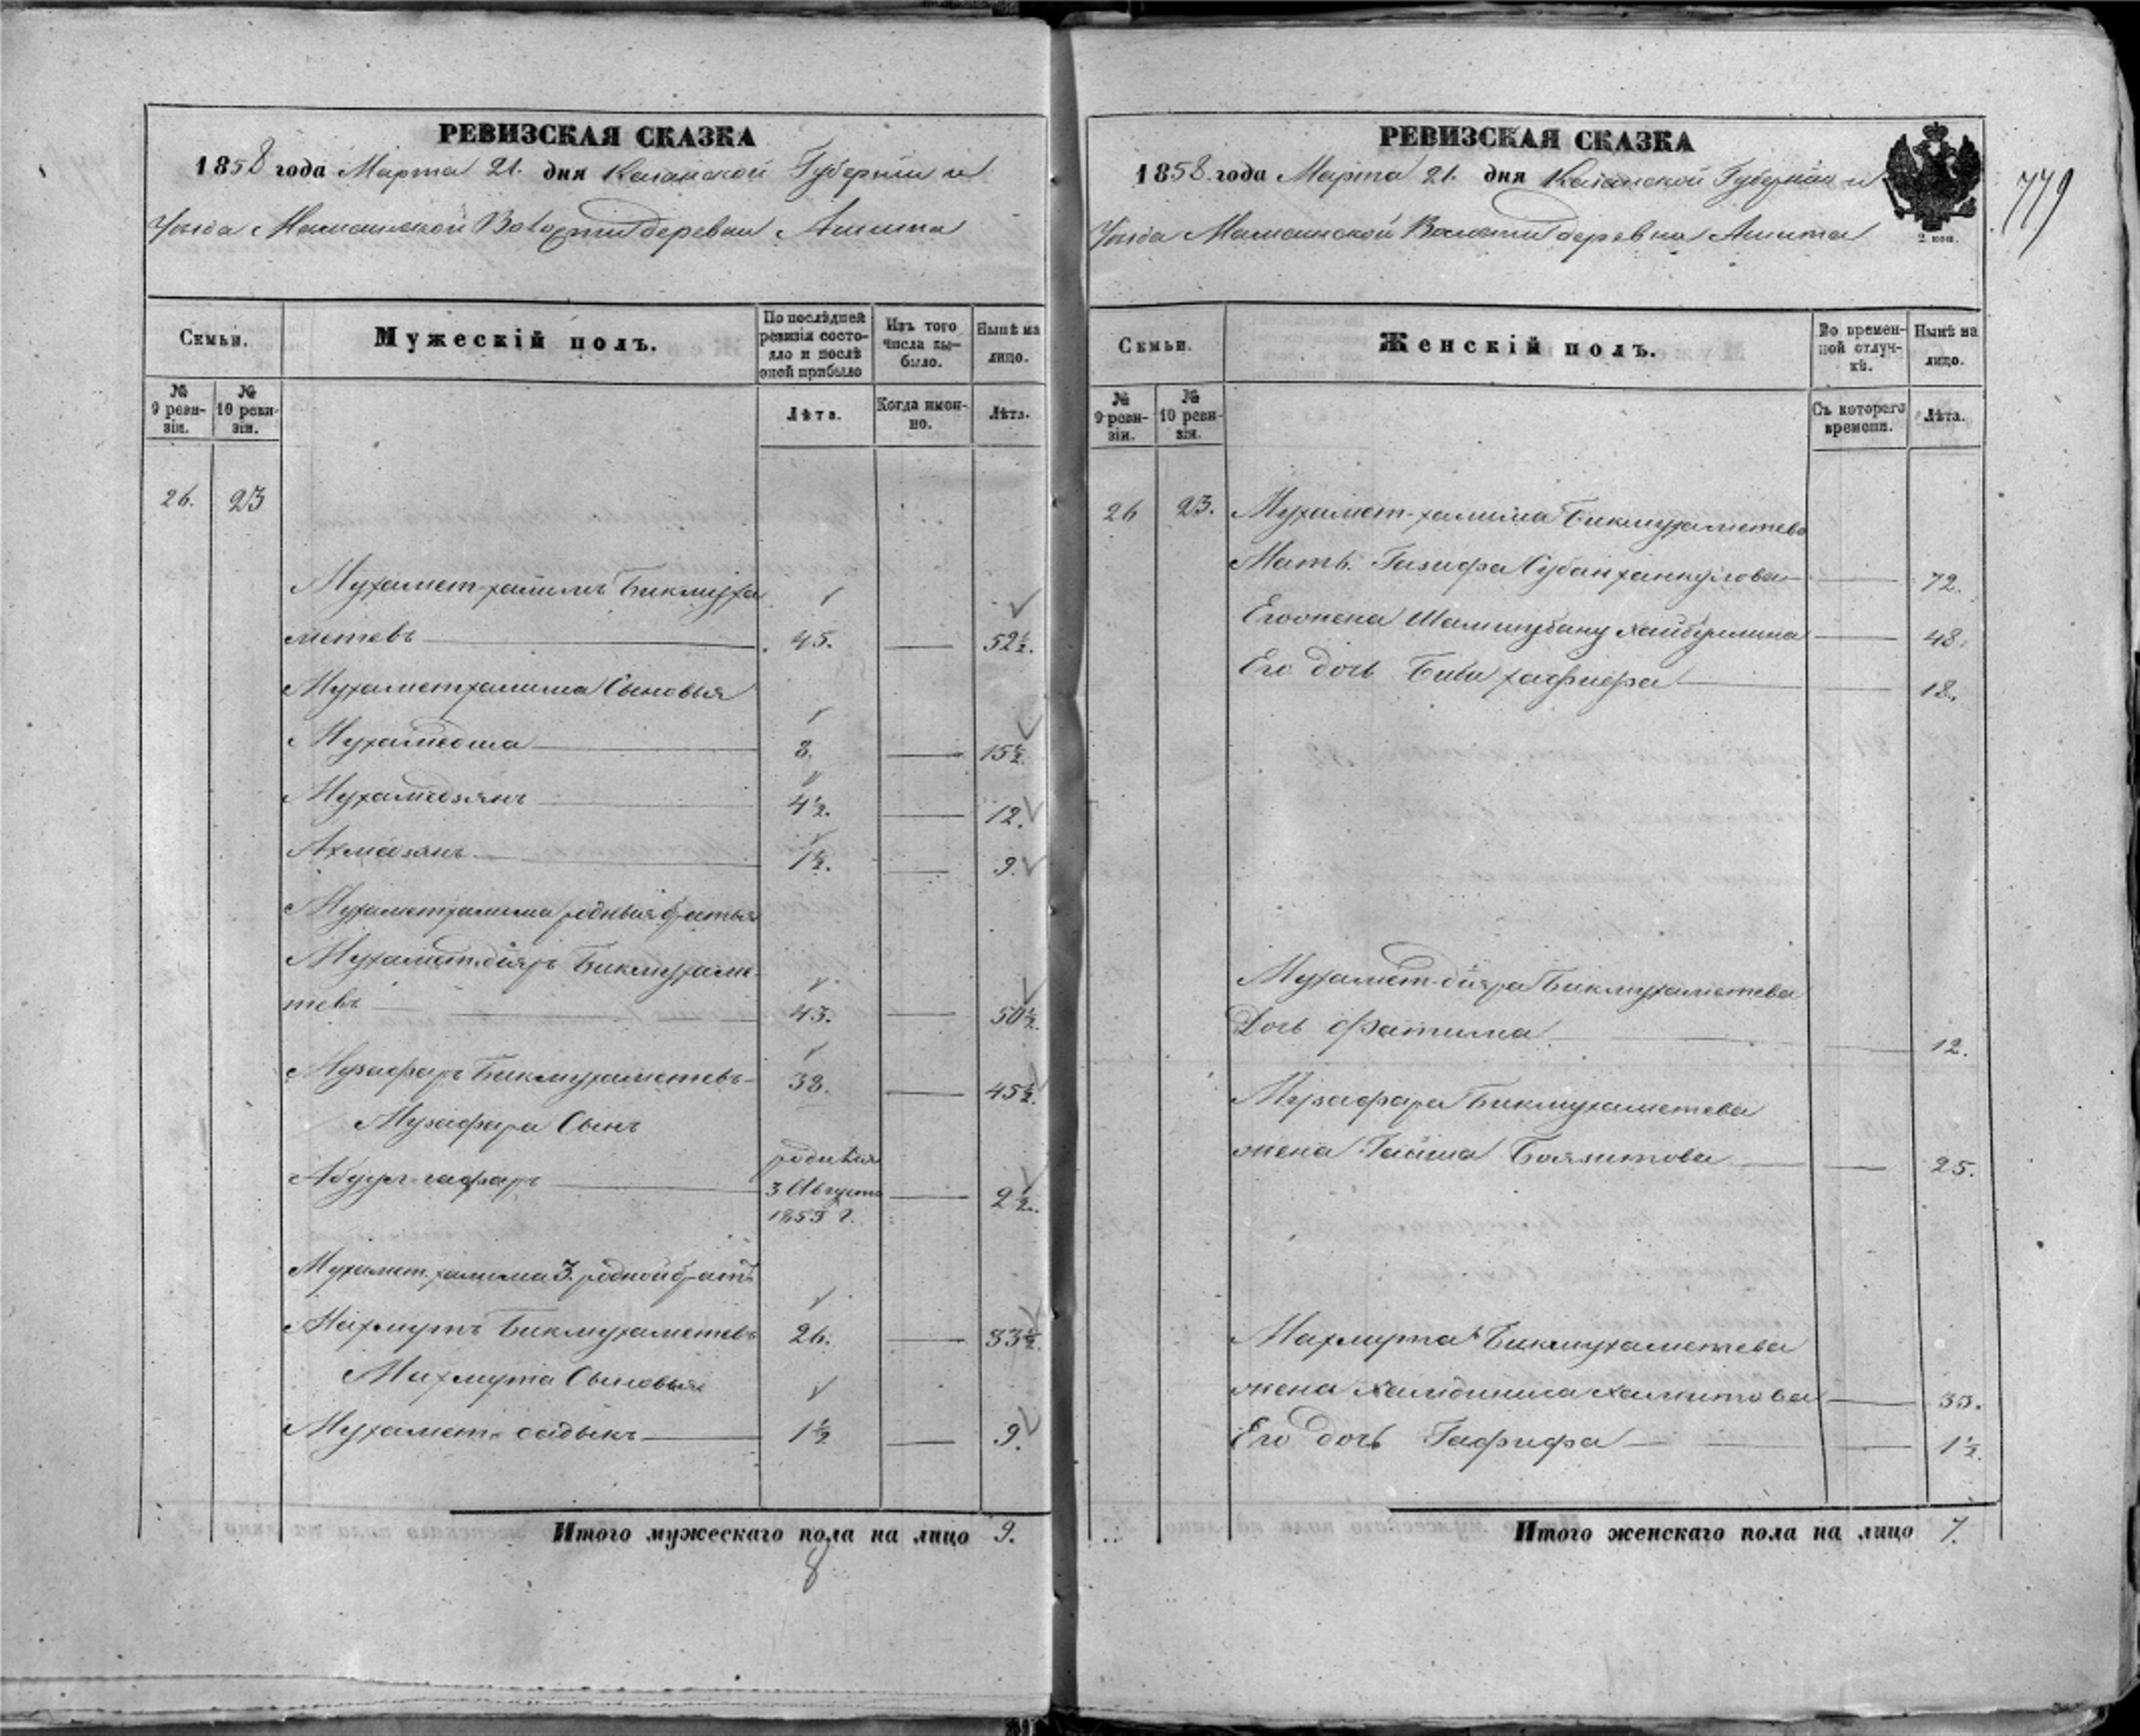 РЕВИЗСКАЯ СКАЗКА
1858 года Марта 21. дня Казанской Губернии и
Уезда Мамсинской Волости деревни Ашита
Семьи.
Мужескій полъ.
По послѣдней ревизіи состояло и послѣ оной прибыло
Изъ того числа выбыло.
Нынѣ на лицо.
№ 9 ревизіи.
№ 10 ревизіи.
Лѣта.
Когда именно.
Лѣта.
26. 23
Мухамет-халимъ Бикмуха
метевъ 45. 52½.
Мухаметхалима Сыновья
Мухамедша 8. 15½.
Мухамедзянъ 4½. 12.
Ахмадзянъ 1½. 9.
Мухаметхалима родныя братья
Мухамет-дияръ Бикмухаме-
тевъ 43. 50½.
Музафаръ Бикмухаметевъ 38. 45½.
Музафара Сынъ
Абдул-гафаръ родился 3 Августа 1855 г. 2½.
Мухамет-халима 3. родной братъ
Махмутъ Бикмухаметевъ 26. 33½.
Махмута Сыновья
Мухамет-садыкъ 1½ 9.
Итого мужескаго пола на лицо 9.
8
РЕВИЗСКАЯ СКАЗКА
1858 года Марта 21. дня Казанской Губернии и
Уезда Мамсинской Волости деревни Ашита
2 коп.
779
Семьи.
Женскій полъ.
Во временной отлучкѣ.
Нынѣ на лицо.
№ 9 ревизіи.
№ 10 ревизіи.
Съ котораго времени.
Лѣта.
26 23. Мухамет-халима Бикмухаметева
Мать Газифа 72.
Его жена 48.
Его дочь Биби 18.
Мухамет-дияра Бикмухаметева
Дочь Фатима 12.
Музафара Бикмухаметева
жена Гайша Баязитова 25.
Махмута Бикмухаметева
жена Хамитова 35.
Его дочь Гафифа 1½.
Итого женскаго пола на лицо 7.